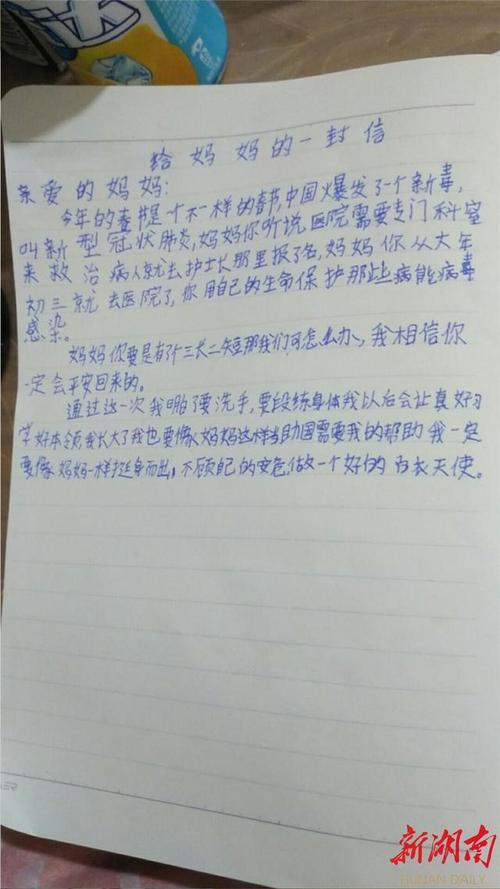 给妈妈的一封信
亲爱的妈妈：
今年的春节是个不一样的春节,中国爆发了一个新毒,
叫新型冠状肺炎,妈妈你听说医院需要专门科室
来救治病人就去护士长那里报了名,妈妈你从大年
初三就去医院了,你用自己的生命保护那些病能病毒
感染。
妈妈你要是有个三长二短那我们可怎么办,我相信你
一定会平安回来的。
通过这一次我明白了要洗手,要段练身体我以后会让真好习
学好本领,我长大了我也要像妈妈这样当助国需要我的帮助我一定
要像妈妈一样挺身而出,不顾自己的安危做一个好的白衣天使。
新湖南
HUNAN DAILY